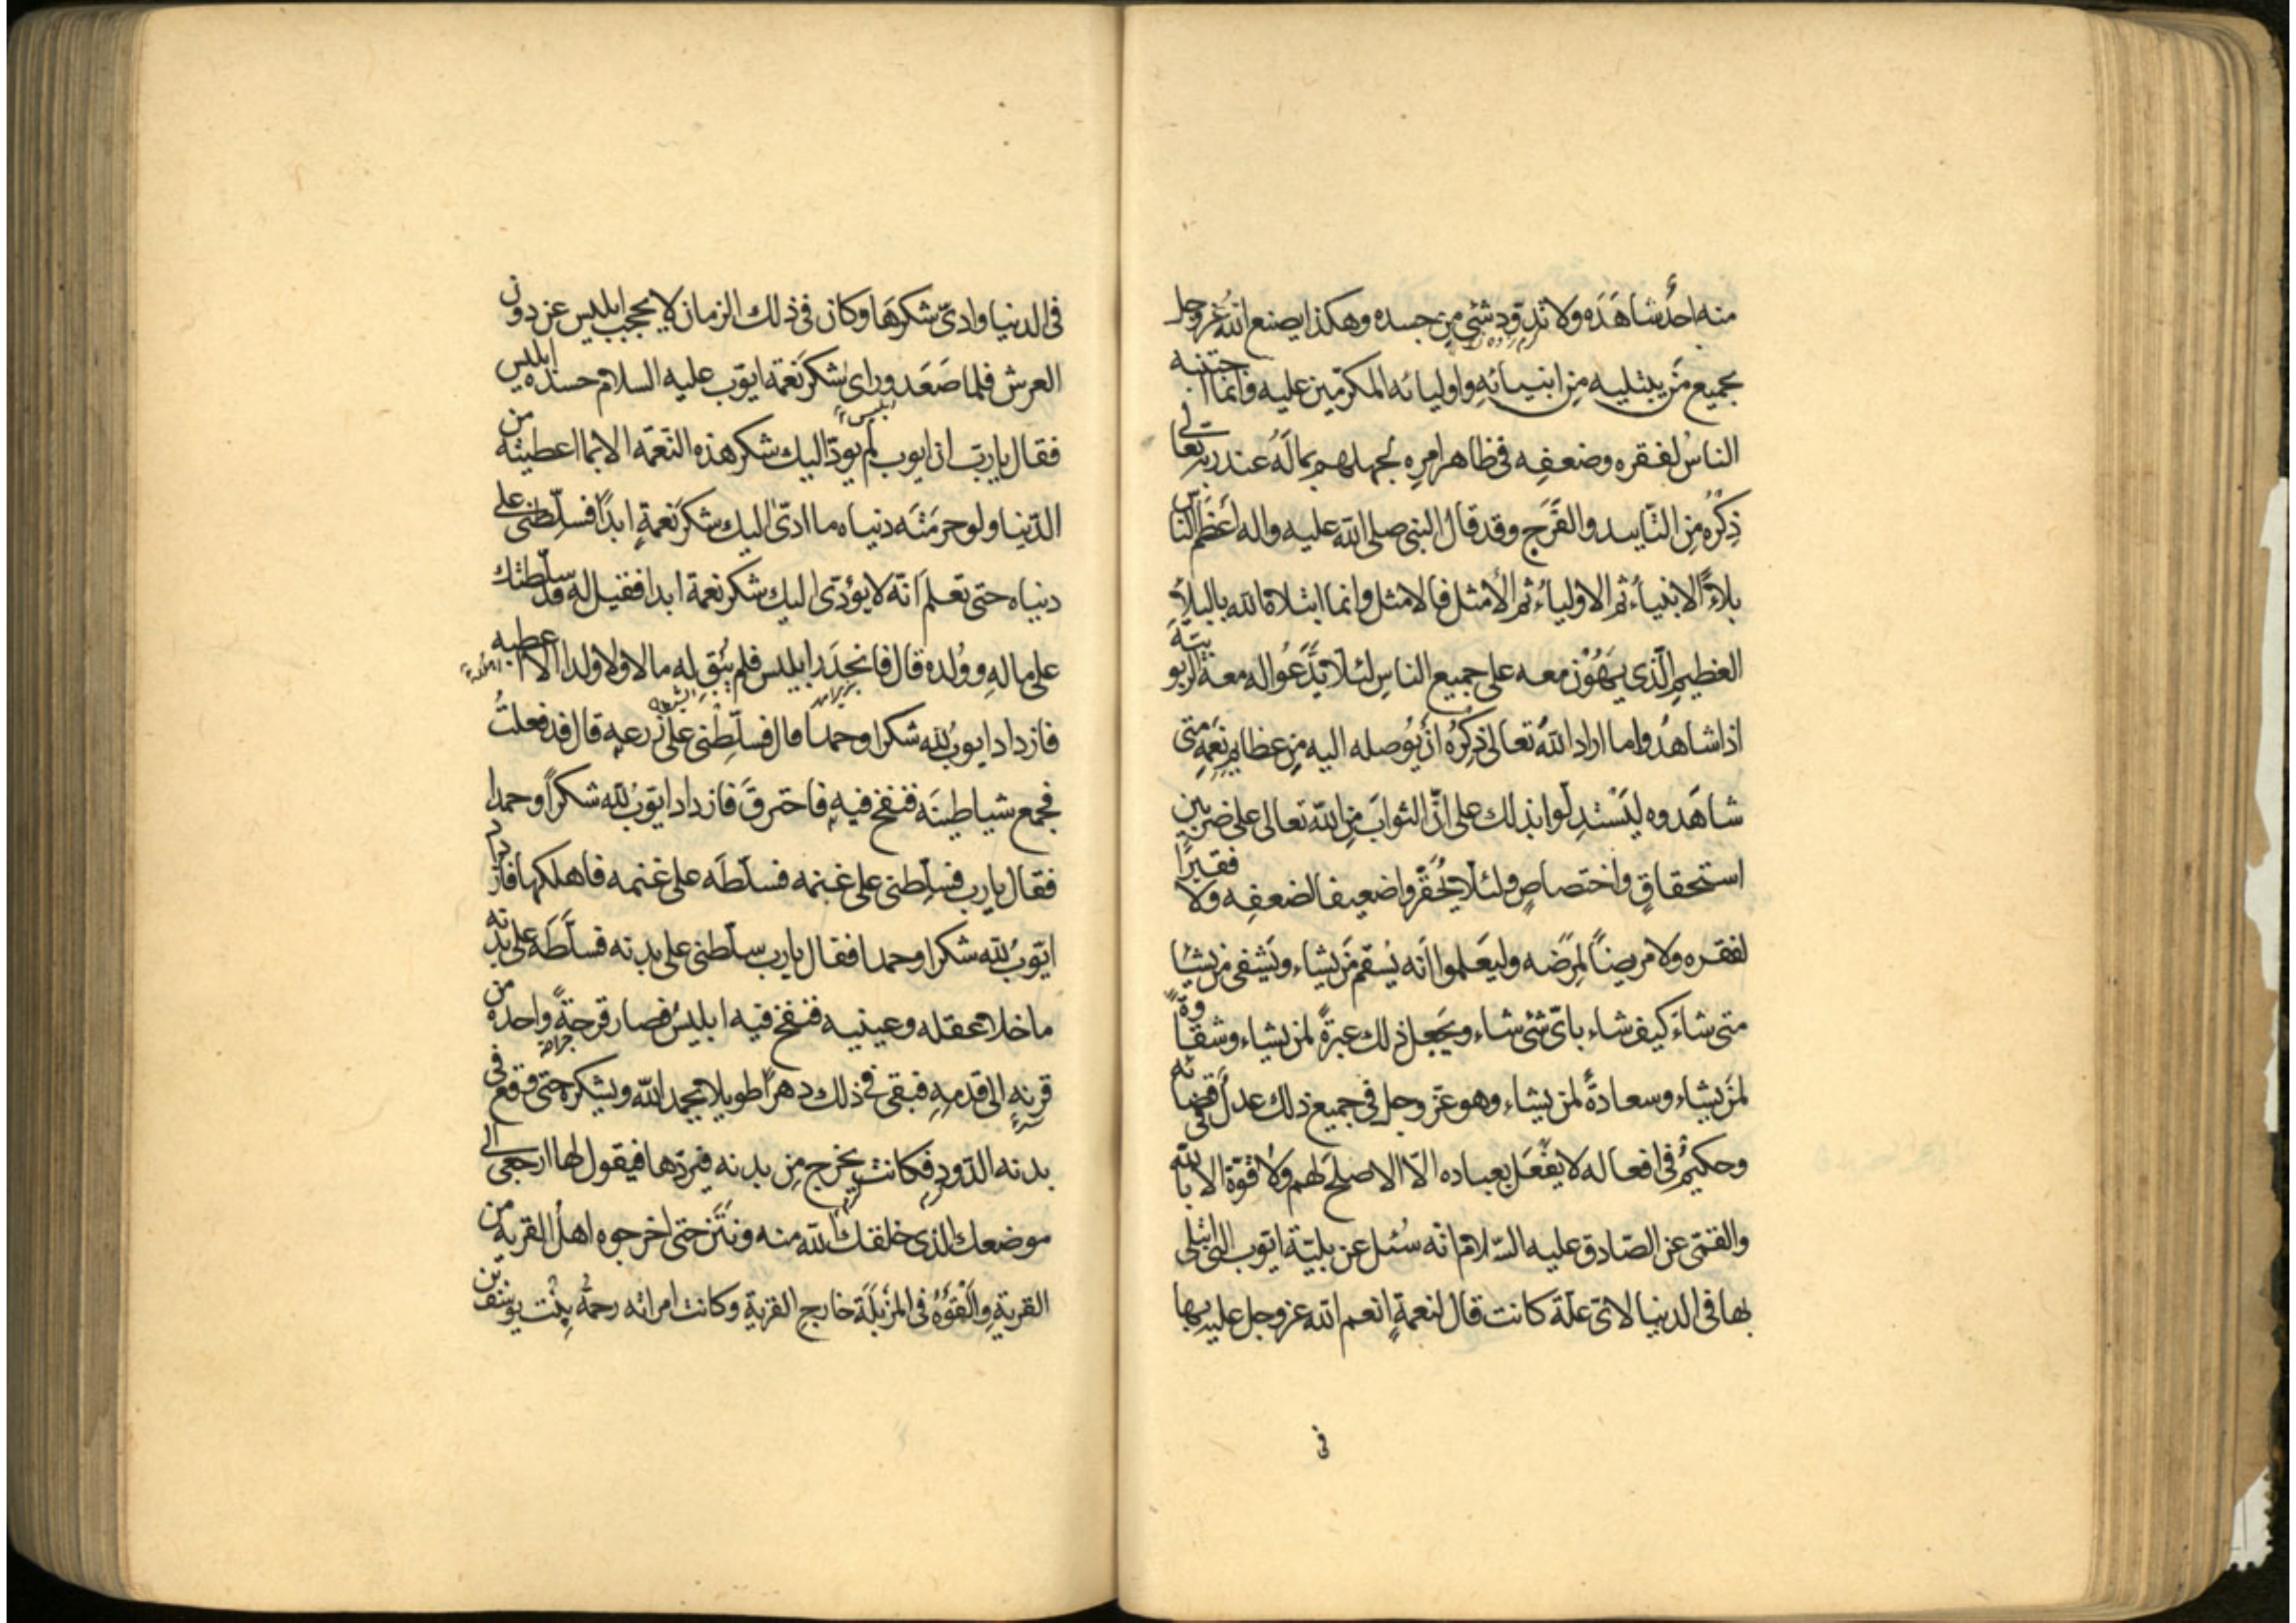 منه احدٌ شاهَدَه ولا تدوّد شئ مِن جسده وهكذا يصنع اللهُ عزوجل
بجميع مَن يبتليه مِن انبيائهِ واوليائه المكرّمين عليه وانما اجتنبه
الناسُ لفقره وضعفِه فى ظاهر امرِه لجهلهم بما لَه عند ربه تعالى
ذِكرُه مِن التّاييد والفَرَج وقد قال النبى صلى الله عليه واله اَعظَم الناس
بلاءً الانبياءُ ثم الاولياءُ ثم الأمثل فالامثل وانما ابتلاه الله بالبلاءِ
العظيمِ الّذى يَهُوْن معه على جميع الناسِ لئلا يدَّعُوا له معة الربوبيّة
اذا شاهدُوا ما اراد اللهُ تعالى ذِكرُه اَنْ يُوصله اليه مِن عظايمِ نِعَمِه متى
شاهَدوه ليَسْتدِلّوا بذلك على اَنّ الثوابَ مِن الله تعالى على ضربين
استحقاقٍ واختصاصٍ ولئلا يُحَقّروا ضعيفا لضعفِه ولا فقيرًا
لفقره ولا مريضاً لِمرَضه وليَعلموا اَنّه يُسقم مَن يشاء ويَشفى من يشاء
متى شاءَ كيف شاء باىّ شئ شاء ويَجعل ذلك عبرةً لمن يشاء وشقاوةً
لمَن يشاء وسعادةً لمن يشاء وهو عزّ وجل فى جميع ذلك عدلٌ فى قضائه
وحكيمٌ فى افعاله لا يفْعَل بعباده الّا الاصلحَ لهم ولا قوّة الا بالله
والقمّى عن الصّادق عليه السّلام انّه سُئل عن بليّة ايّوب التى ابتلى
بها فى الدنيا لاىّ علّة كانت قال لنعمةٍ انعم الله عز وجل عليه بها
فى
فى الدنيا وادىّ شكرَها وكان فى ذلك الزمان لا يحجب ابليس عن دون
العرش فلما صَعَد وراى شكر نعمة ايوّب عليه السلام حسده ابليس
ابليس
فقال يا ربّ ان ايوب لم يودّ اليك شكر هذه النّعمَه الا بما اعطيته من
الدّنيا ولو حرمَتَه دنياه ما ادىّ اليك شكرَ نعمةٍ ابداً فسلِّطنى على
دنياه حتى تعلم اَنّه لا يؤدّى اليك شكر نعمة ابدا فقيل له قد سلّطتك
على مالهِ ووُلده قال فانحدَر ابليس فلم يُبقِ له مالا ولا ولدا الا اعطبه
فازداد ايوبُ لله شكرا وحمدا قال فسلِّطنى على زرعهِ قال قد فعلتُ
فجمع شياطينَه فنفخ فيهِ فاحترقَ فازداد ايّوبُ لله شكراً وحمدا
فقال يا رب فسلِّطنى على غنمه فسلّطَه على غنمه فاهلكها فازداد
ايّوبُ لله شكرا وحمدا فقال يا رب سلّطنى على بدنه فسلَّطَه على بدنه
ما خلا عقله وعينيه فنفخ فيه ابليسُ فصار قرحةً واحدةً من
قرنِهٖ الى قدمِهٖ فبقى فى ذلك دهراً طويلا يحمد الله ويشكره حتى وقع فى
بدنه الدّود فكانت يخرج مِن بدنه فيردّها فيقول لها ارجعى الى
موضعك الذى خلقك الله منه ونَتَن حتى اخرجوه اهلُ القرية من
القريةِ والقَوْهُ فى المَزْبَلَة خارج القرية وكانت امراته رحمةُ بِنْت يوسف بن